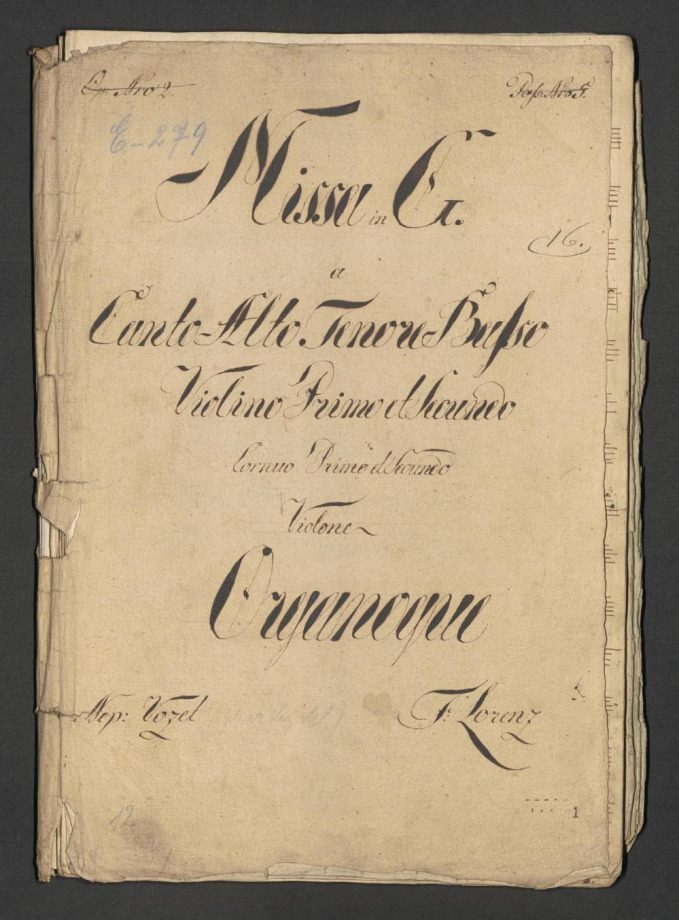 Op: Nro 2.
Pass: Nro 5.
E-279
Missa in G.
16.
a
Canto-Alto. Tenore-Basso
Violino Primo et Secundo
Cornuo Primo et Secundo
Violone
Organoque
Nep: Vozel
F: Lorenz
12
1